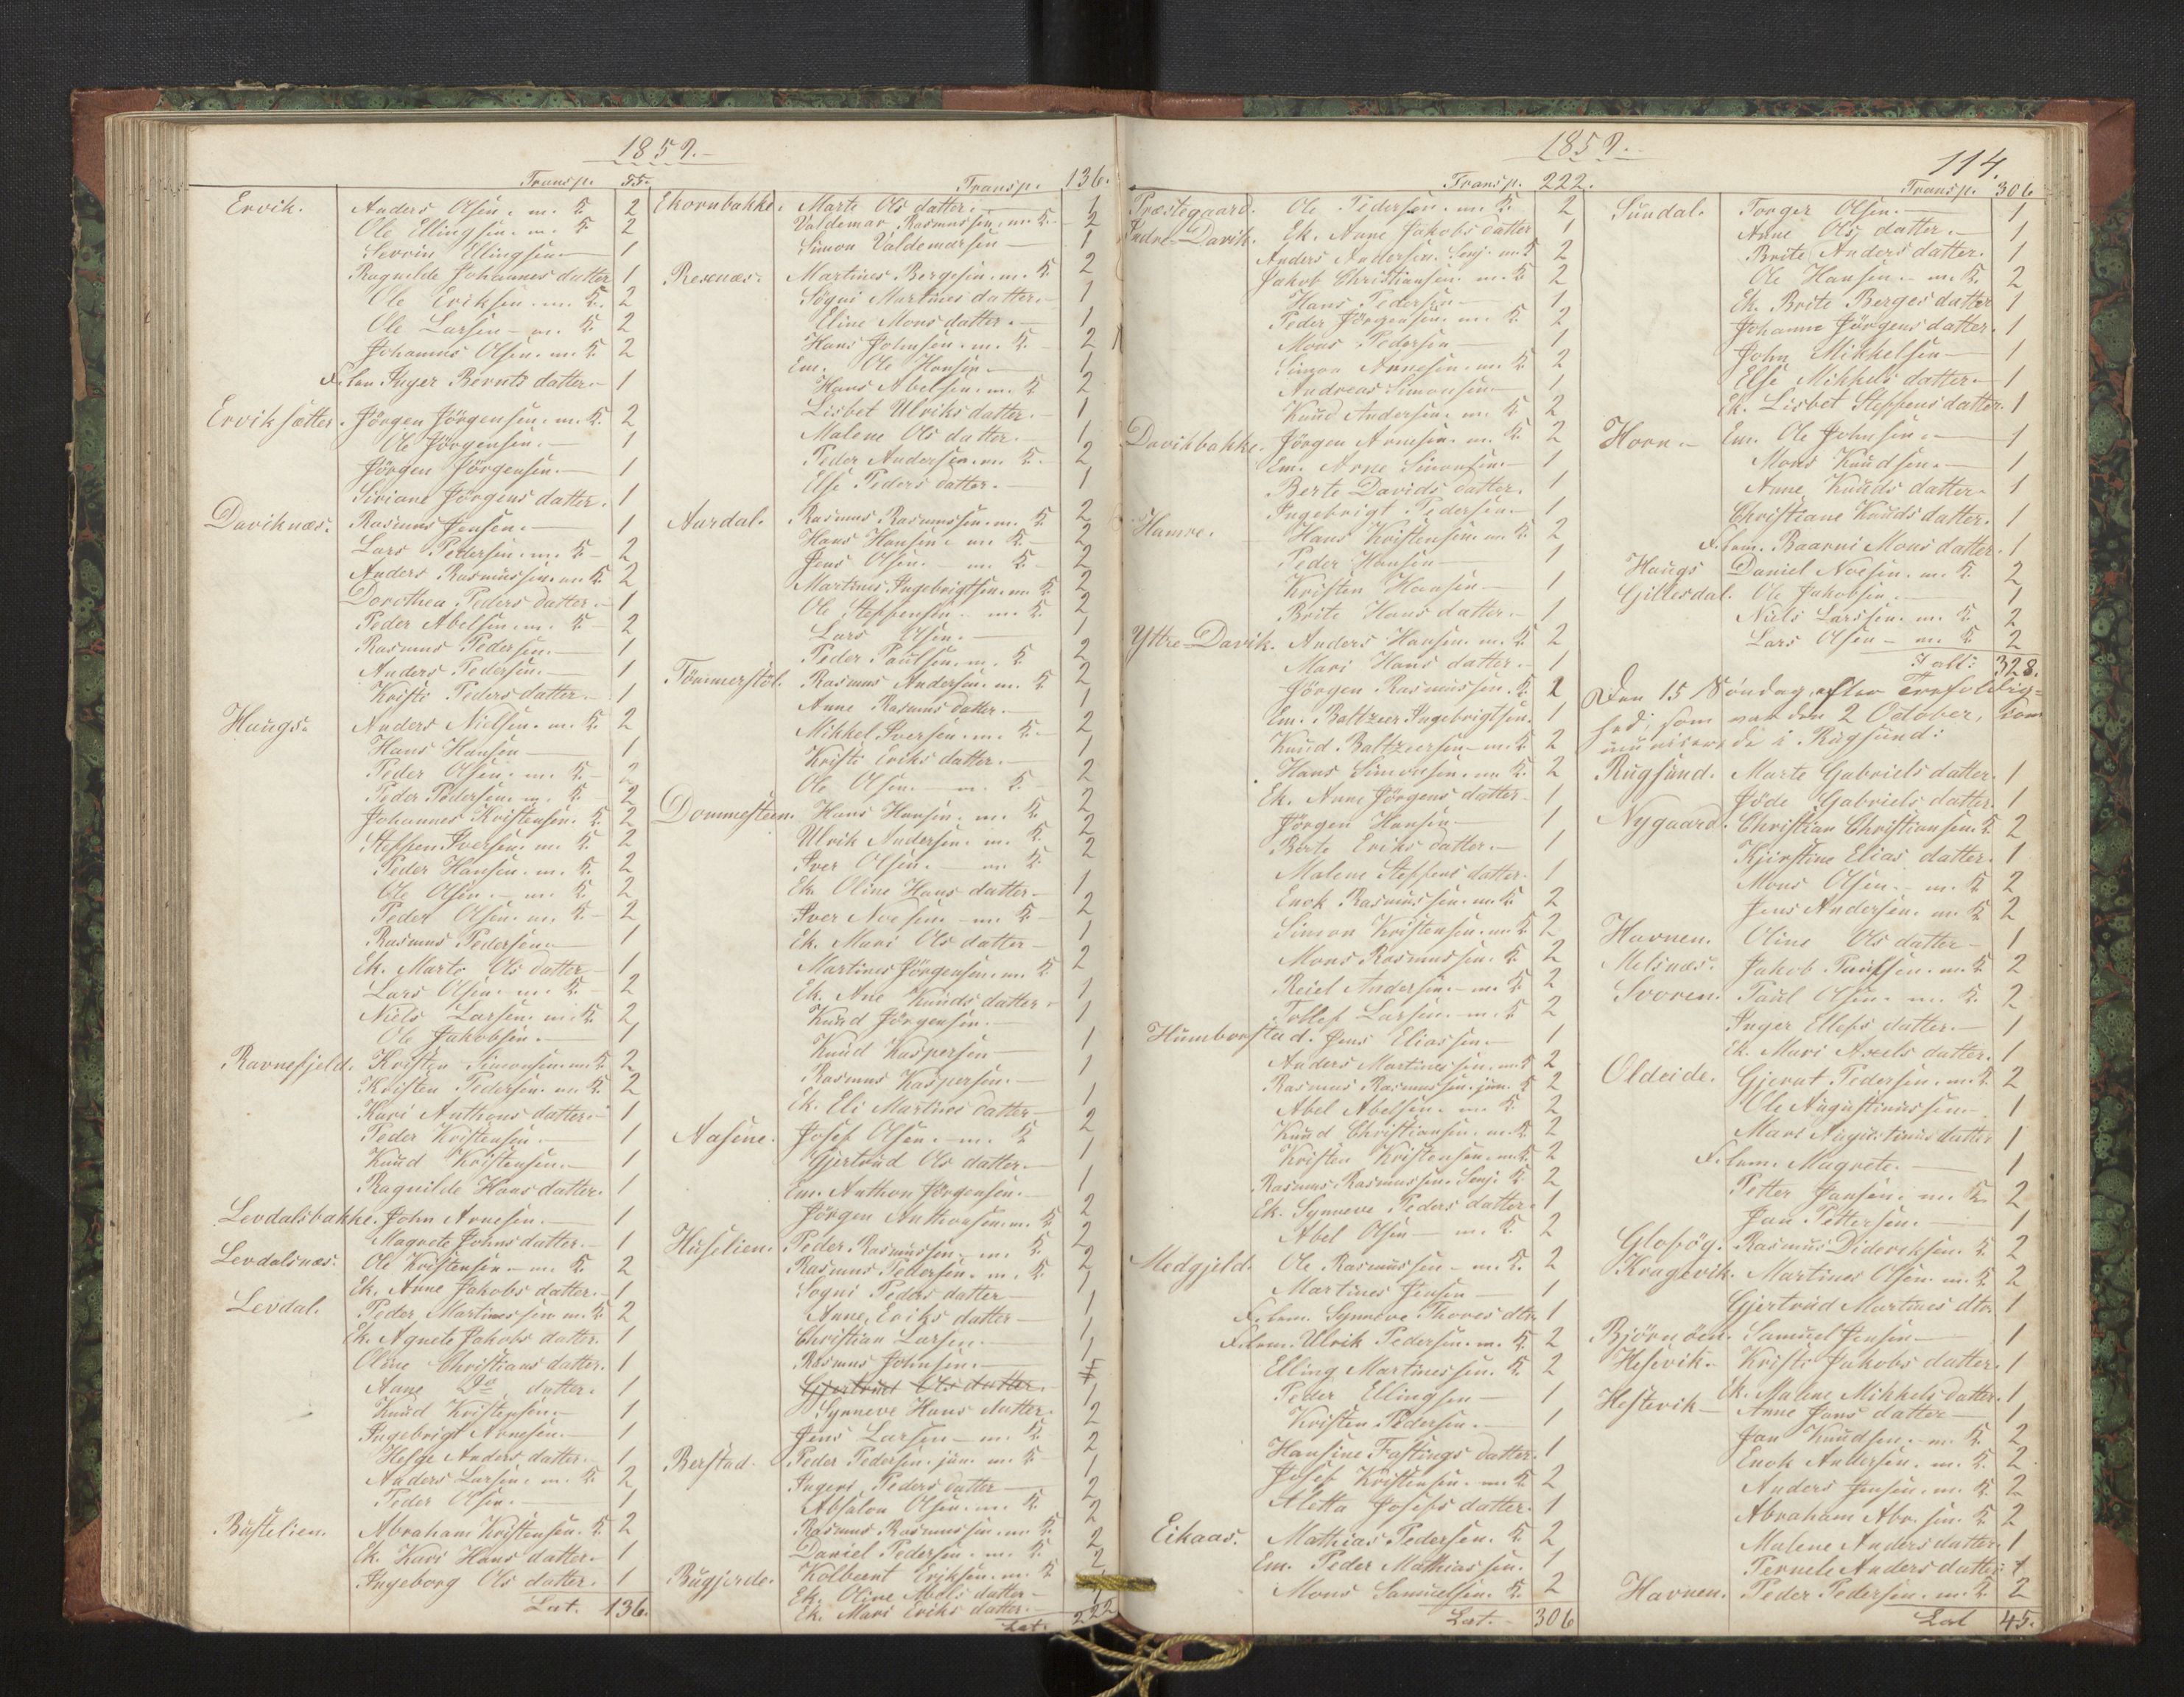 1859.
Transp. 55.
Ervik. Anders Olsen. m. K. 2
Ole Ellingsen. m. K 2
Severin Ellingsen 1
Ragnilde Johannes datter 1
Ole Eriksen. m. K. 2
Ole Larsen - m. K. 2
Johannes Olsen. m. K. 2
F. lem Inger Bernts datter. 1
Erviksætter. Jörgen Jörgensen. m. K. 2
Ole Jörgensen. 1
Jörgen Jörgensen. 1
Siriane Jörgens datter. 1
Daviknæs. Rasmus Jensen. 1
Lars Pedersen. m. K 2
Anders Rasmussen. m K. 2
Dorothea Peders datter. 1
Peder Abelsen. m. K 2
Rasmus Pedersen. 1
Anders Pedersen. 1
Kristi Peders datter. 1
Haugs. Anders Nielsen. m. K. 2
Hans Hansen 1
Peder Olsen. m. K. 2
Peder Pedersen. m. K 2
Johannes Kristensen. K. 2
Steffen Iversen. m. K. 2
Peder Hansen. m. K. 2
Ole Olsen. m. K. 2
Peder Olsen. m. K. 2
Rasmus Pedersen. 1
Ek. Marte Ols datter 1
Lars Olsen. m. K. 2
Niels Larsen. m. K. 2
Ole Jakobsen. 1
Ravnefjeld. Kristen Simonsen. m. K 2
Kristen Pedersen. m. K. 2
Kari Anthons datter. 1
Peder Kristensen. 1
Knud Kristensen. 1
Ragnilde Hans datter. 1
Levdalsbakke. John Arnesen. 1
Magrete Johns datter. 1
Levdalsnæs. Ole Kristensen. m. K. 2
Ek. Anne Jakobs datter. 1
Levdal. Peder Martinessen m. K 2
Ek. Agnete Jakobs datter. 1
Oline Christians datter. 1
Anne Do datter. 1
Knud Kristensen. 1
Ingebrigt Arnesen. 1
Helge Anders datter. 1
Anders Larsen. m. K 2
Peder Olsen. 1
Bustelien. Abraham Kristensen. K. 2
Ek. Kari Hans datter. 1
Ingeborg Ols datter. 1
Lat. 136.
Transp. 136.
Ekornbakke. Marte Ols datter. 1
Valdemar Rasmussen. m K. 2
Simon Valdemarsen 1
Resenæs. Martines Bergesen. m. K. 2
Sögni Martines datter. 1
Eline Mons datter. 1
Hans Johnsen. m. K. 2
Em. Ole Hansen 1
Hans Abelsen. m. K. 2
Lisbet Ulriks datter. 1
Malene Ols datter. 1
Peder Andersen. m. K. 2
Else Peders datter. 1
Aardal. Rasmus Rasmussen. m. K 2
Hans Hansen. m K. 2
Jens Olsen. m. K. 2
Martines Ingebrigtsen. m. K 2
Ole Steffensen. m. K. 2
Lars Olsen. 1
Peder Paulsen. m. K 2
Tömmerstöl. Rasmus Andersen. m. K 2
Anne Rasmus datter. 1
Mikkel Iversen. m. K. 2
Kristi Eriks datter. 1
Ole Olsen. m. K. 2
Dommesteen. Hans Hansen. m. K 2
Ulrik Andersen. m. K 2
Iver Olsen. m. K 2
Ek. Oline Hans datter 1
Iver Noesen m. K 2
Ek. Mari Ols datter 1
Martines Jörgensen. m. K 2
Ek. Ane Knuds datter. 1
Knud Jörgensen. 1
Knud Kaspersen 1
Rasmus Kaspersen. 1
Ek. Eli Martines datter 1
Aasene. Josef Olsen. m. K 2
Gjertrud Ols datter. 1
Em. Anthon Jörgensen. 1
Jörgen Anthonsen. m. K 2
Huselien. Peder Rasmussen. m. K 2
Rasmus Pedersen. m. K. 2
Sogni Peders datter 1
Anne Eriks datter 1
Christian Larsen. 1
Rasmus Johnsen. 1
Gjertrud Ols datter. 1
Synneve Hans datter. 1
Jens Larsen m. K. 2
Berstad. Peder Pedersen. jun. m. K 2
Ingeri Peders datter 1
Absalon Olsen. m. K. 2
Rasmus Rasmussen. m K. 2
Daniel Pedersen. m. K. 2
Bugjerde. Kolbeent Eriksen. m. K 2
Ek. Oline Abels datter 1
Ek. Mari Eriks datter. 1
Lat. 222
1859.
114.
Transp. 222.
Præstegaard. Ole Pedersen. m. K. 2
Indre-Davik. Ek. Anne Jakobs datter 1
Anders Andersen. Senj. m. K 2
Jakob Christiansen. m. K 2
Hans Pedersen 1
Peder Jörgensen. m. K. 2
Mons Pedersen 1
Simon Arnesen. m. K 2
Andreas Simonsen 1
Knud Andersen. m. K. 2
Davikbakke. Jörgen Arnesen. m. K. 2
Em. Arne Simonsen. 1
Berte Davids datter. 1
Ingebrigt Pedersen. 1
Hamre. Hans Kristensen. m. K 2
Peder Hansen 1
Kristen Hansen 1
Brite Hans datter. 1
Yttre-Davik. Anders Hansen. m. K. 2
Mari Hans datter. 1
Jörgen Rasmussen. K. 2
Em. Baltzer Ingebrigtsen. 1
Knud Baltzersen. m. K. 2
Hans Simonsen. m. K. 2
Ek. Anne Jörgens datter. 1
Jörgen Hansen. 1
Berte Eriks datter. 1
Malene Steffens datter. 1
Enok Rasmussen. m K 2
Simon Kristensen. m K 2
Mons Rasmussen. K. 2
Reiel Andersen. m. K 2
Tollef Larsen. m. K 2
Humborstad. Jens Eliassen. 1
Anders Martinessen. m K 2
Rasmus Rasmussen. jun. K 2
Abel Abelsen. m. K. 2
Knud Christiansen. m. K. 2
Kristen Kristensen. m. K. 2
Rasmus Rasmussen. Senj. K 2
Ek. Synneve Peders datter. 1
Abel Olsen m. K. 2
Medgjeld. Ole Rasmussen. m. K. 2
Martines Jensen 1
F. lem. Synneve Thores dtr. 1
F. lem. Ulrik Pedersen. m. K. 2
Elling Martinessen. K. 2
Peder Ellingsen 1
Kristen Pedersen. 1
Hansine Fastings datter. 1
Josef Kristensen. m. K 2
Aletta Josefs datter. 1
Eikaas. Mathias Pedersen. K. 2
Em. Peder Mathiassen. 1
Mons Samuelsen. K. 2
Lat. 306
Transp. 306
Sundal. Torger Olsen. 1
Anne Ols datter. 1
Brite Anders datter. 1
Ole Hansen. m. K. 2
Ek. Brite Berges datter 1
Johanne Jörgens datter. 1
John Mikkelsen 1
Else Mikkels datter. 1
Ek. Lisbet Steffens datter. 1
Horn. Em. Ole Johnsen. 1
Mons Knudsen. 1
Anne Knuds datter. 1
Christiane Knuds datter. 1
F. lem. Baarni Mons datter. 1
Haugs Daniel Noesen. m. K. 2
Gillesdal. Ole Jakobsen. 1
Niels Larssen. m. K 2
Lars Olsen m. K 2
I alt: 328.
Den 15 Söndag efter Trefoldig-
hed, som var den 2 October, kom
municerede i Rugsund:
Rugsund. Marte Gabriels datter. 1
Jöde Gabriels datter. 1
Nygaard. Christian Christiansen. K 2
Kjirstine Elias datter. 1
Mons Olsen. m. K 2
Jens Andersen. m. K 2
Havnen. Oline Ols datter 1
Melsnæs. Jakob Paulsen. m. K 2
Svoren. Paul Olsen. m. K. 2
Inger Ellefs datter. 1
Ek. Mari Axels datter. 1
Oldeide. Gjerut Pedersen. m. K 2
Ole Augustinussen. 1
Mari Augustinus datter 1
F. lem. Magrete. 1
Petter Jansen. m. K. 2
Jan Pettersen. 1
Glofög. Rasmus Dideriksen. K 2
Kragevik. Martines Olsen. m. K 2
Gjertrud Martines dtr. 1
Björnöen. Samuel Jensen 1
Hesevik. Kristi Jakobs datter. 1
Ek. Malene Mikkels datter. 1
Hestevik Anne Jans datter 1
Jan Knudsen. m. K 2
Enok Andersen. m. K 2
Anders Jensen. m. K 2
Abraham Abr. sen. K 2
Malene Anders datter. 1
Pernele Anders datter. 1
Havnen. Peder Pedersen. m. K 2
Lat 45.